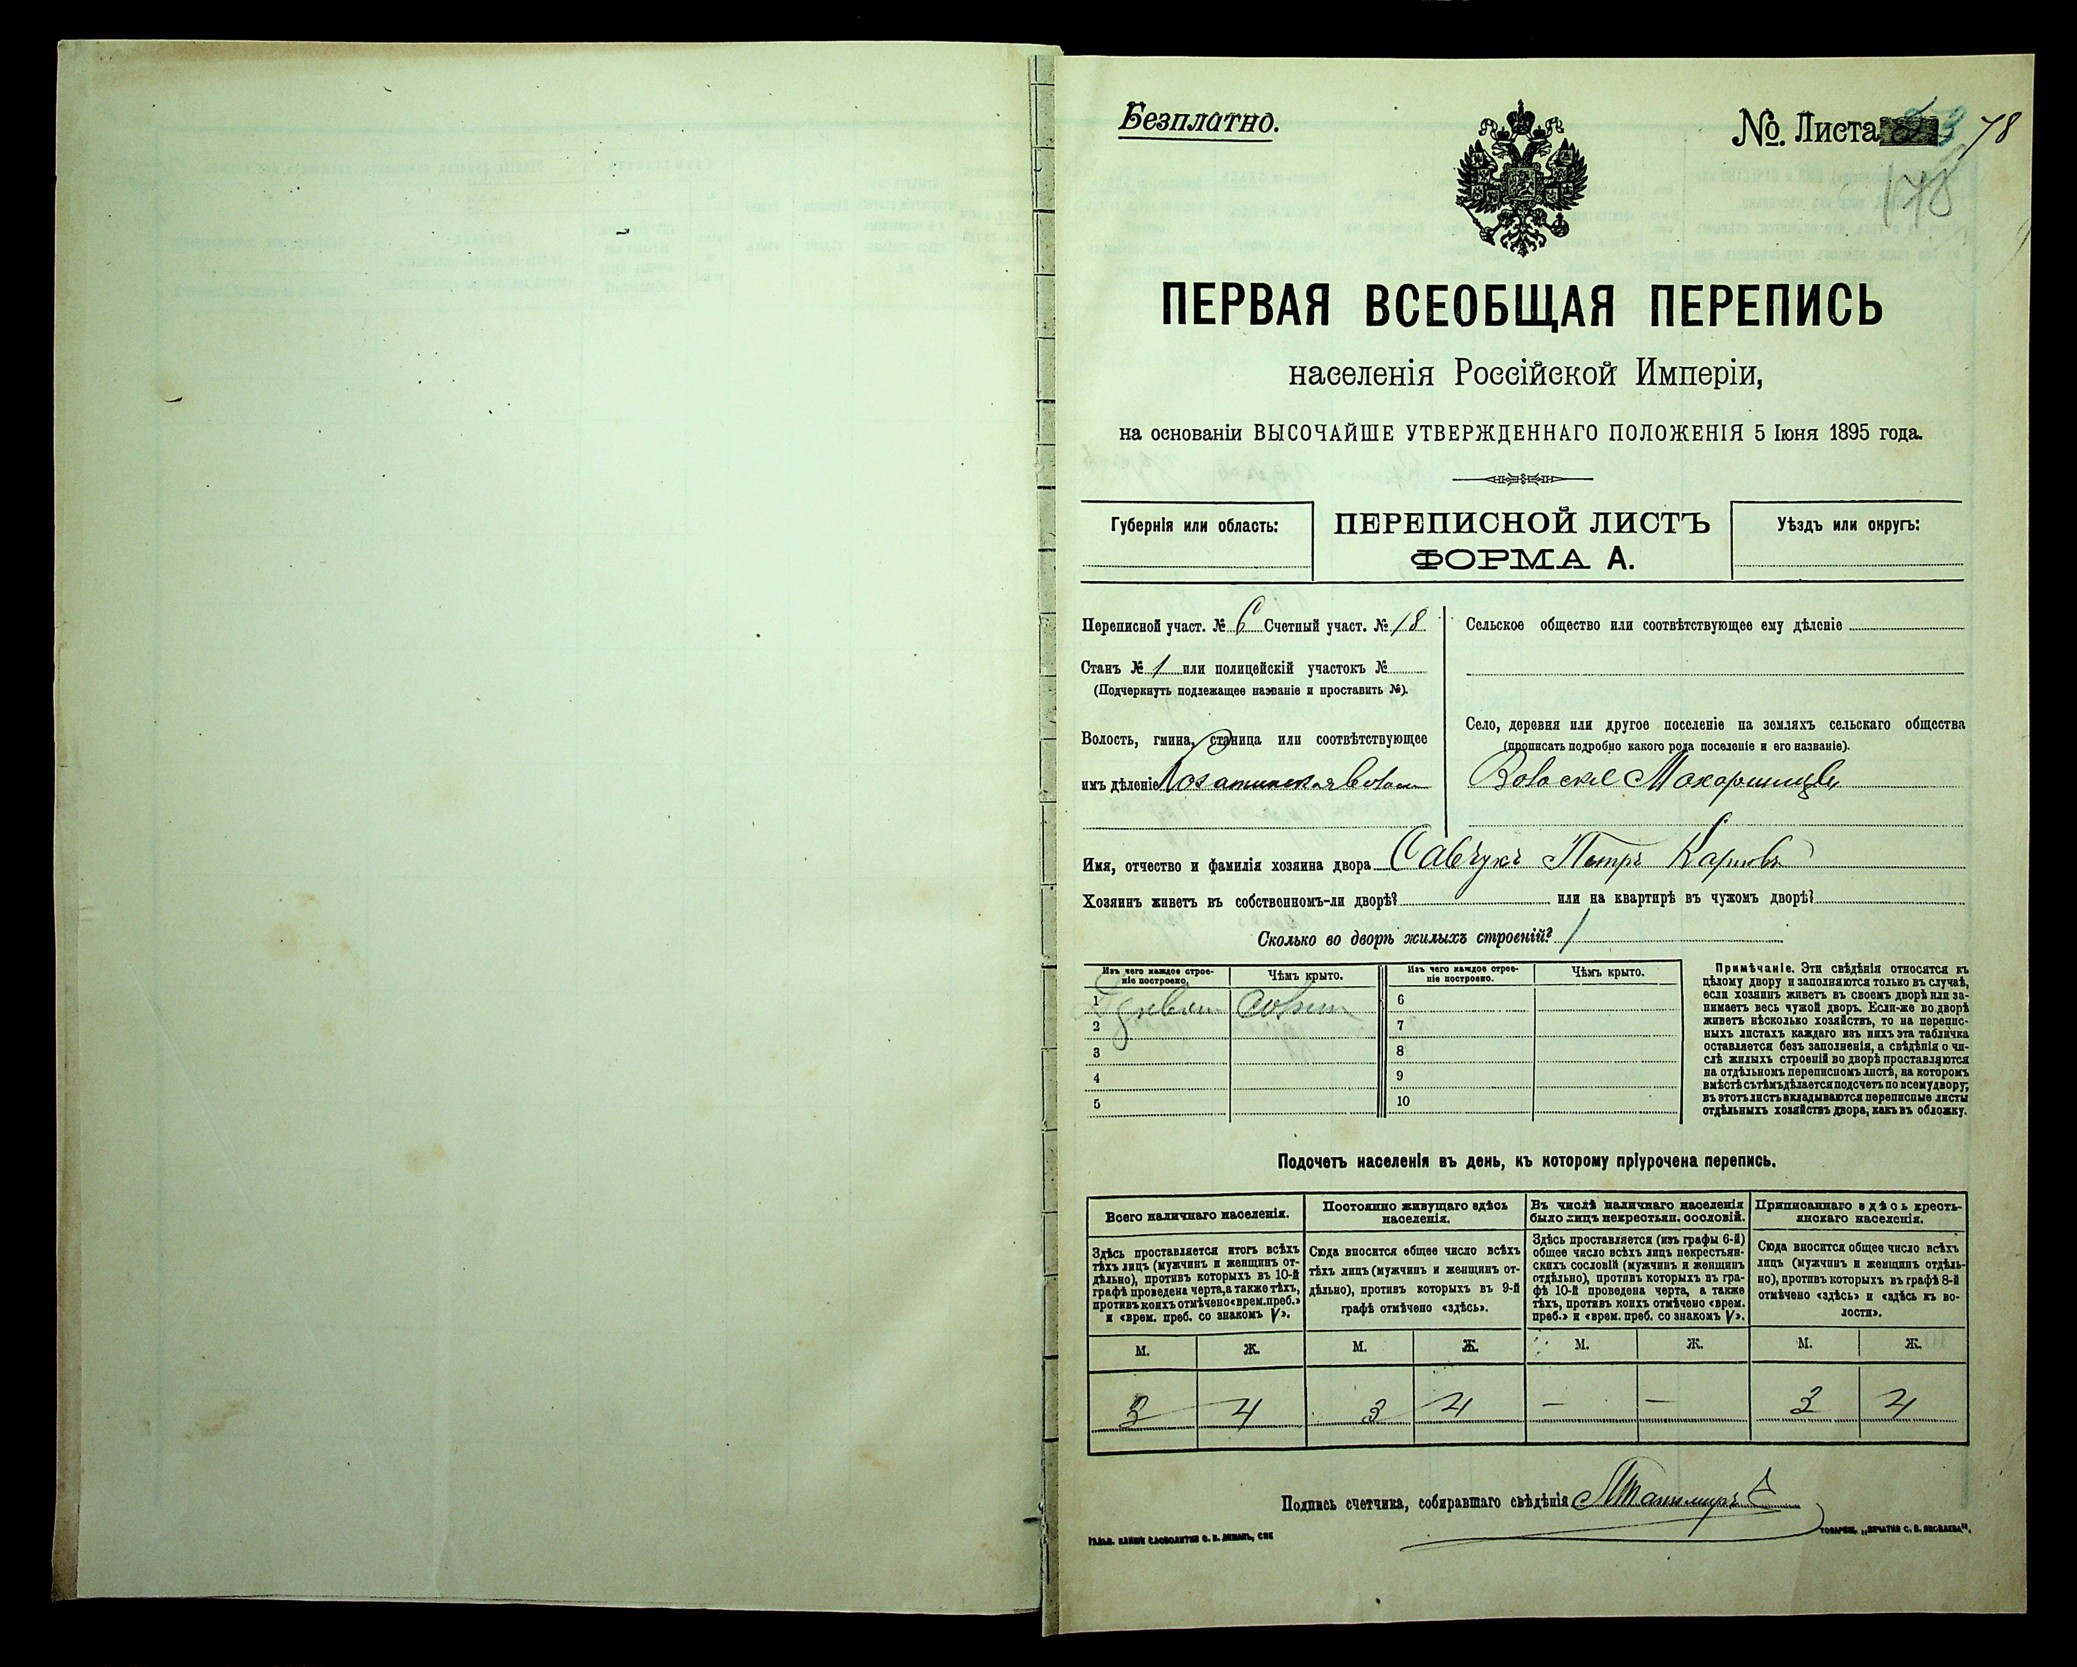 Безплатно.
№. Листа 78
178
ПЕРВАЯ ВСЕОБЩАЯ ПЕРЕПИСЬ
населенія Россійской Имперіи,
на основаніи ВЫСОЧАЙШЕ УТВЕРЖДЕННАГО ПОЛОЖЕНІЯ 5 Іюня 1895 года.
Губернія или область:
ПЕРЕПИСНОЙ ЛИСТЪ
ФОРМА А.
Уѣздъ или округъ:
Переписной участ. № 6 Счетный участ. № 18
Станъ № 1 или полицейскій участокъ №
(Подчеркнуть подлежащее названіе и проставить №).
Волость, гмина, станица или соотвѣтствующее
имъ дѣленіе
Сельское общество или соотвѣтствующее ему дѣленіе
Село, деревня или другое поселеніе на земляхъ сельскаго общества
(прописать подробно какого рода поселеніе и его названіе).
Имя, отчество и фамилія хозяина двора Савчукъ Петръ Карповъ
Хозяинъ живетъ въ собственномъ-ли дворѣ? или на квартирѣ въ чужомъ дворѣ?
Сколько во дворѣ жилыхъ строеній? 1
Изъ чего каждое строе-
ніе построено.
Чѣмъ крыто.
1
2
3
4
5
Изъ чего каждое строе-
ніе построено.
Чѣмъ крыто.
6
7
8
9
10
Примѣчаніе. Эти свѣдѣнія относятся къ
цѣлому двору и заполняются только въ случаѣ,
если хозяинъ живетъ въ своемъ дворѣ или за-
нимаетъ весь чужой дворъ. Если-же во дворѣ
живетъ нѣсколько хозяйствъ, то на перепис-
ныхъ листахъ каждаго изъ нихъ эта табличка
оставляется безъ заполненія, а свѣдѣнія о чи-
слѣ жилыхъ строеній во дворѣ проставляются
на отдѣльномъ переписномъ листѣ, на которомъ
вмѣстѣ съ тѣмъ дѣлается подсчетъ по всему двору;
въ этотъ листъ вкладываются переписные листы
отдѣльныхъ хозяйствъ двора, какъ въ обложку.
Подочетъ населенія въ день, къ которому пріурочена перепись.
Всего наличнаго населенія.
Здѣсь проставляется итогъ всѣхъ
тѣхъ лицъ (мужчинъ и женщинъ от-
дѣльно), противъ которыхъ въ 10-й
графѣ проведена черта, а также тѣхъ,
противъ коихъ отмѣчено «врем. преб.»
и «врем. преб. со знакомъ V».
М. Ж.
3 4
Постоянно живущаго здѣсь
населенія.
Сюда вносится общее число всѣхъ
тѣхъ лицъ (мужчинъ и женщинъ от-
дѣльно), противъ которыхъ въ 9-й
графѣ отмѣчено «здѣсь».
М. Ж.
3 4
Въ числѣ наличнаго населенія
было лицъ некрестьян. сословій.
Здѣсь проставляется (изъ графы 6-й)
общее число всѣхъ лицъ некрестьян-
скихъ сословій (мужчинъ и женщинъ
отдѣльно), противъ которыхъ въ гра-
фѣ 10-й проведена черта, а также
тѣхъ, противъ коихъ отмѣчено «врем.
преб.» и «врем. преб. со знакомъ V».
М. Ж.
— —
Приписаннаго здѣсь кресть-
янскаго населенія.
Сюда вносится общее число всѣхъ
лицъ (мужчинъ и женщинъ отдѣль-
но), противъ которыхъ въ графѣ 8-й
отмѣчено «здѣсь» и «здѣсь къ во-
лости».
М. Ж.
3 4
Подпись счетчика, собиравшаго свѣдѣнія